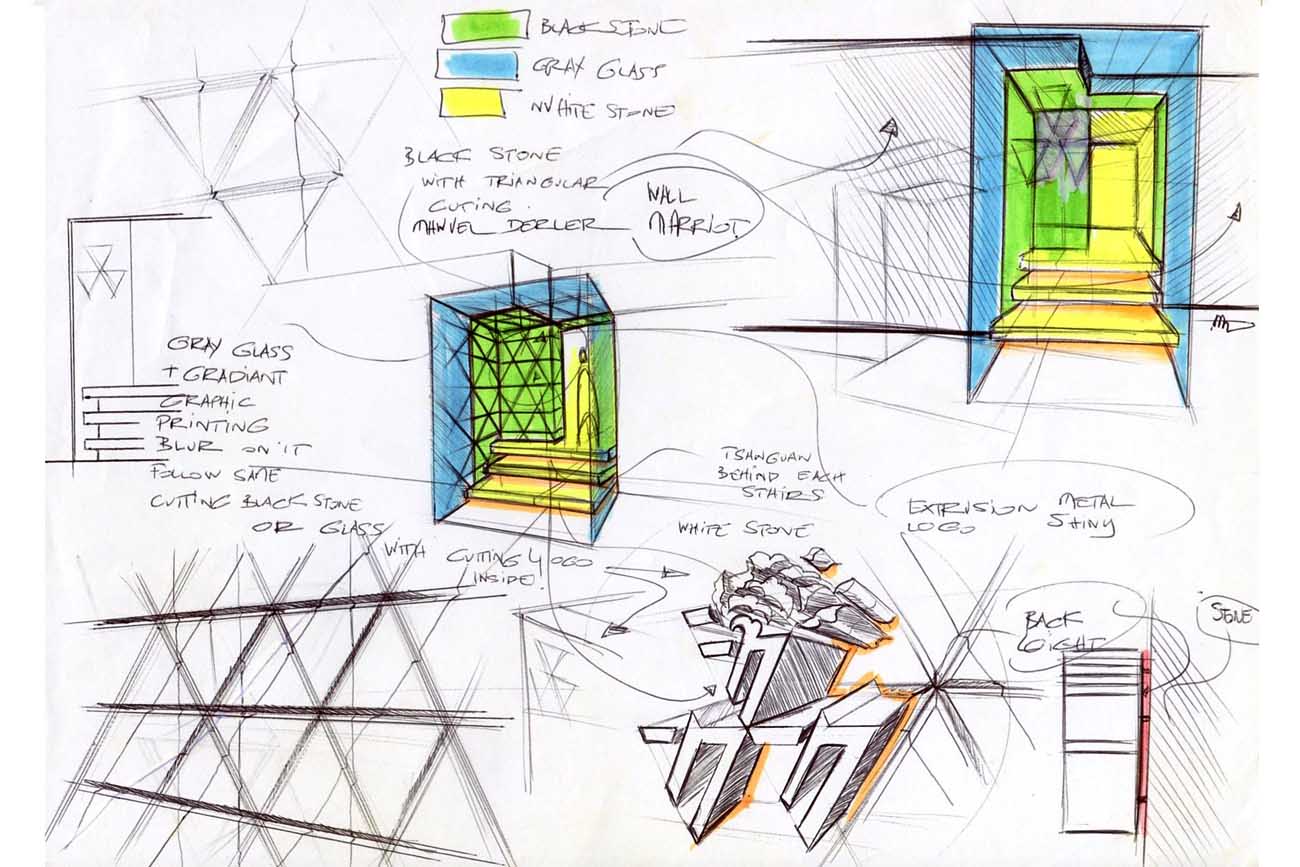 BLACK STONE
GRAY GLASS
WHITE STONE
BLACK STONE
WITH TRIANGULAR
CUTING.
WALL
MARRIOT
GRAY GLASS
+ GRADIANT
GRAPHIC
PRINTING
BLUR ON IT
FOLLOW SAME
CUTTING BLACK STONE
OR GLASS
WITH CUTTING LOGO
INSIDE!
BEHIND EACH
STAIRS
WHITE STONE
EXTRUSION METAL
LOGO SHINY
BACK
LIGHT
STONE